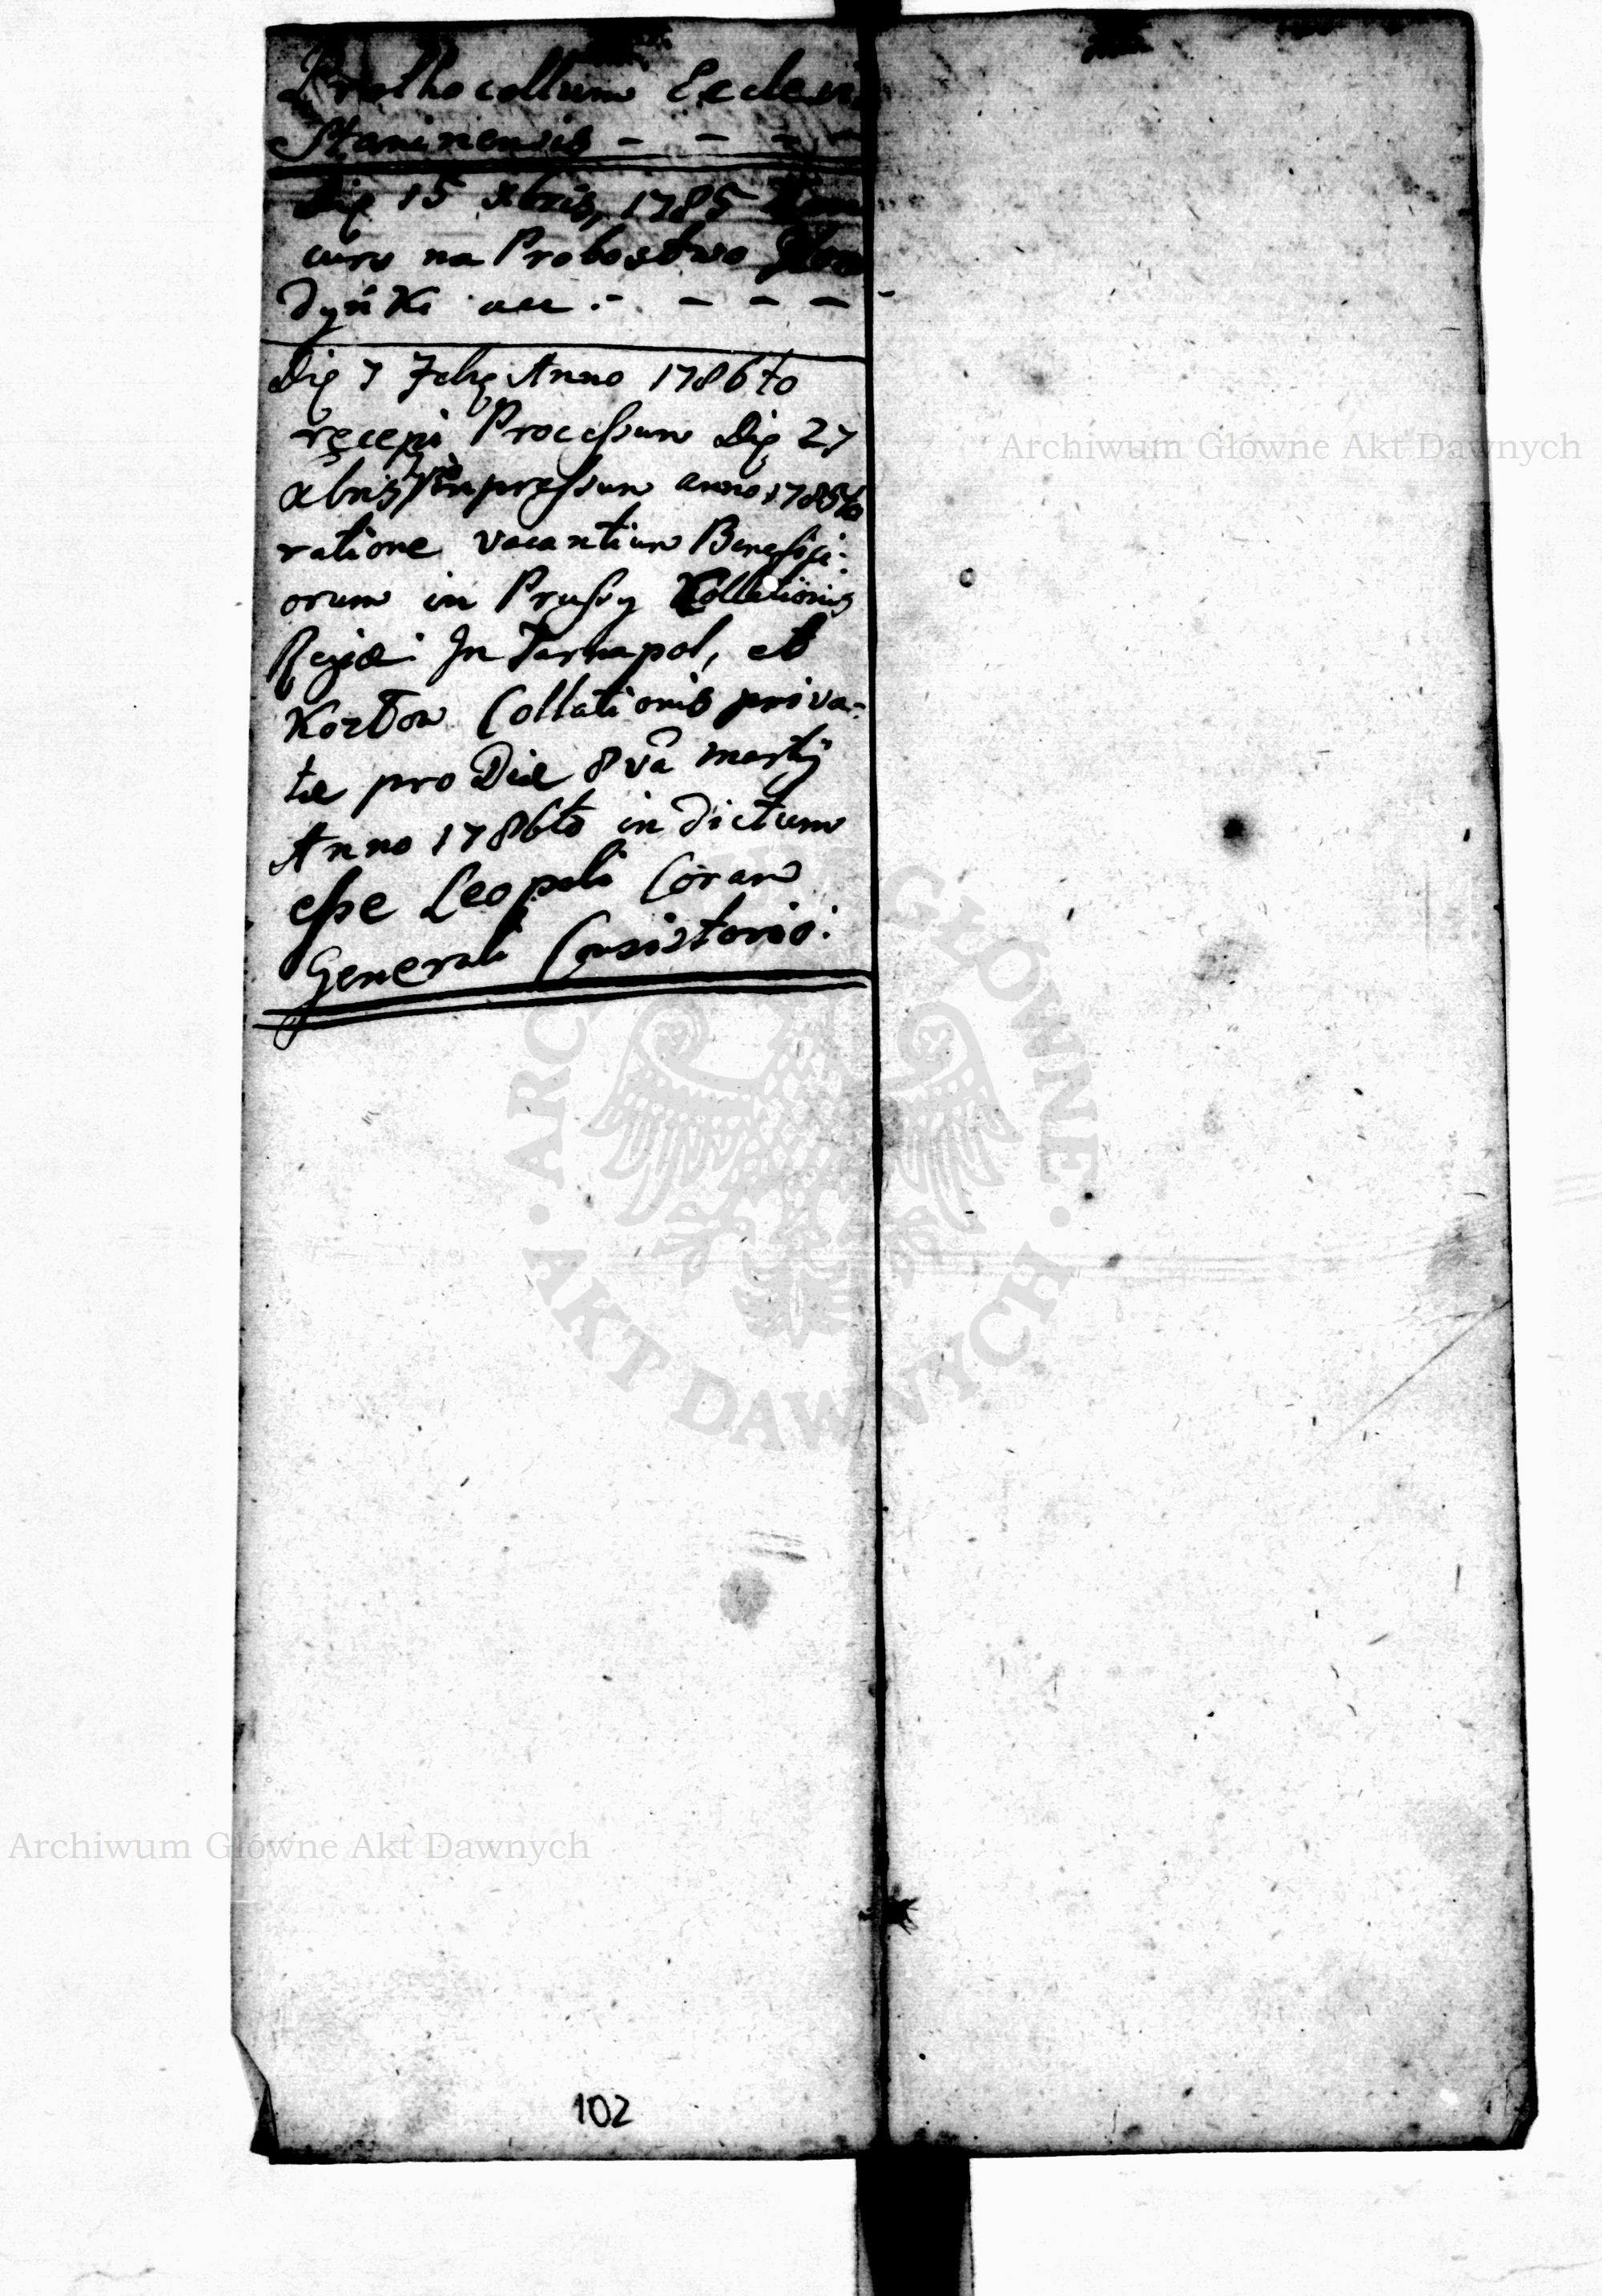 Prothocollum Ecclesiæ
Staninensis - - - -
Die 15 Xbris, 1785
curs na Probostwo
dyńki - - - -
Die 7 Febre Anno 1786to
recepi Processum Die 27
Xbris impressum anno 1785to
ratione vacantium Benefici:
orum in Prussy Collationis
Regiæ: In Tarnapol, et
Kozłow Collationis priva=
tæ pro Die 8va martij
Anno 1786to indictum
esse Leopoli Coram
Generali Consistorio:
102
Archiwum Główne Akt Dawnych
Archiwum Główne Akt Dawnych
GŁÓWNE
AKT DAWNYCH